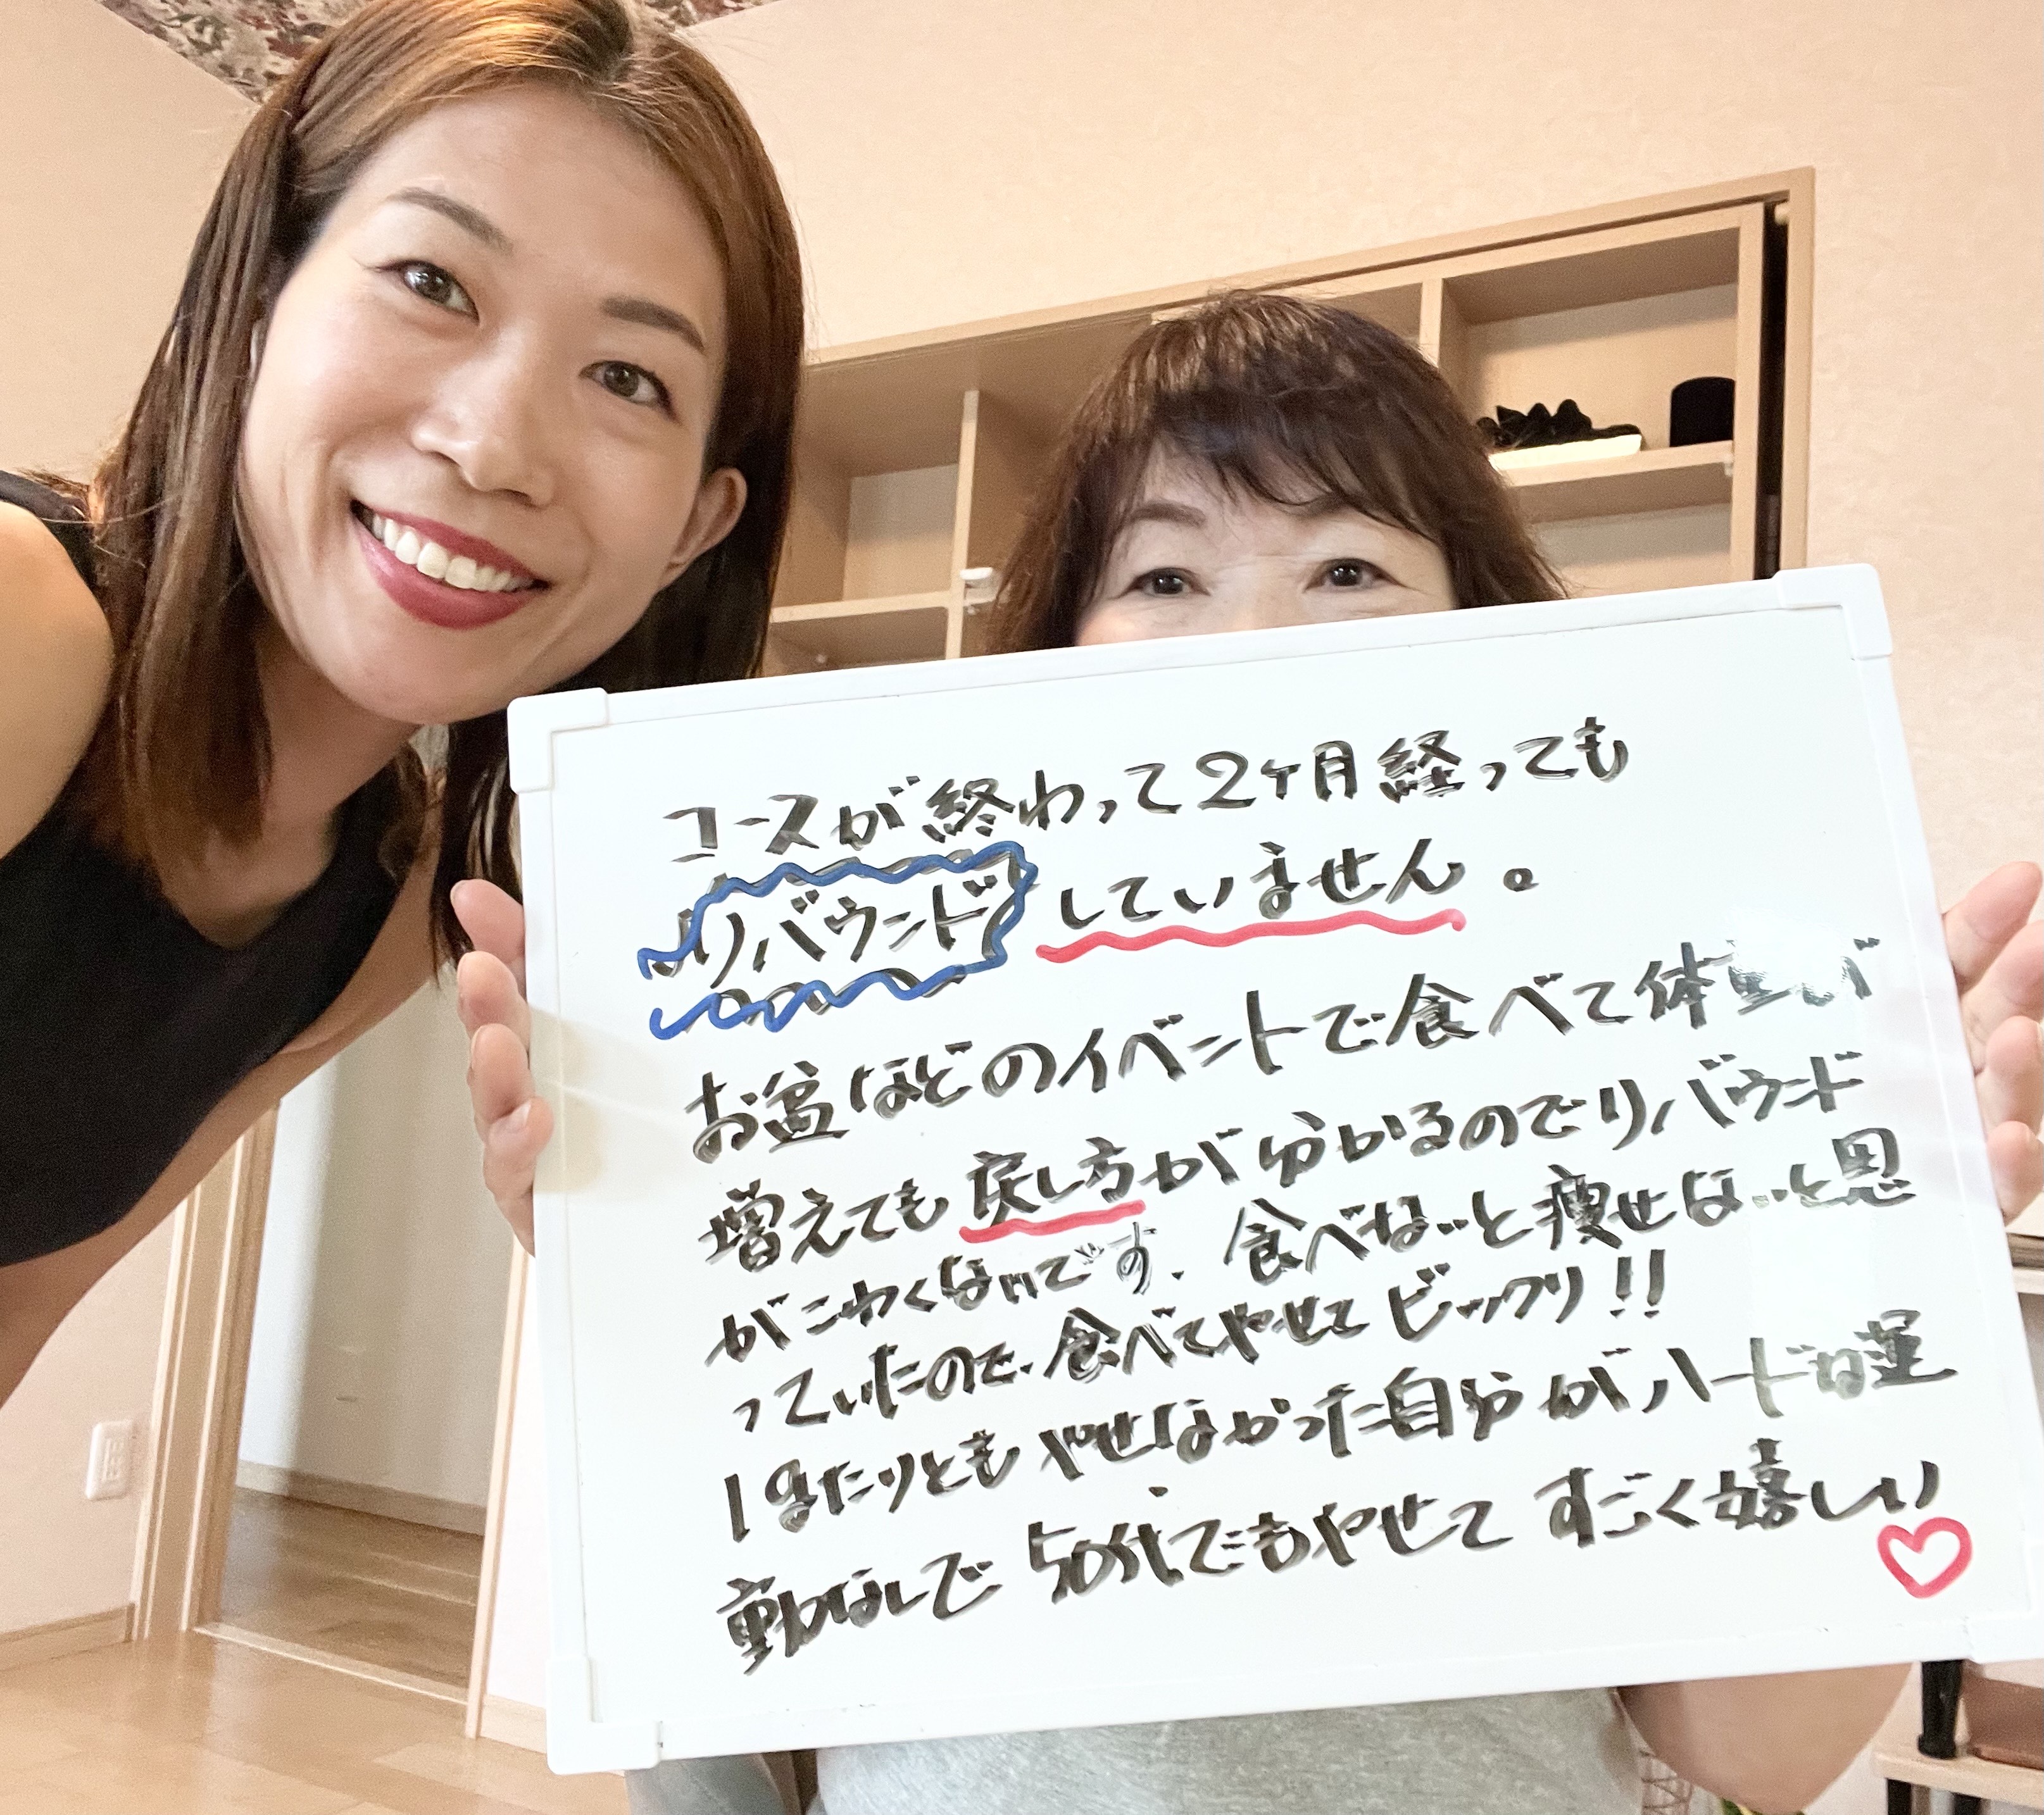 コースが終わって2ヶ月経っても
リバウンドしていません。
お盆などのイベントで食べて体重が
増えても戻し方が分かるのでリバウンド
がこわくないです。食べないと痩せないと思
っていたので、食べてやせてビックリ!!
1gたりともやせなかった自分がハードな運
動なしで50代でもやせてすごく嬉しい